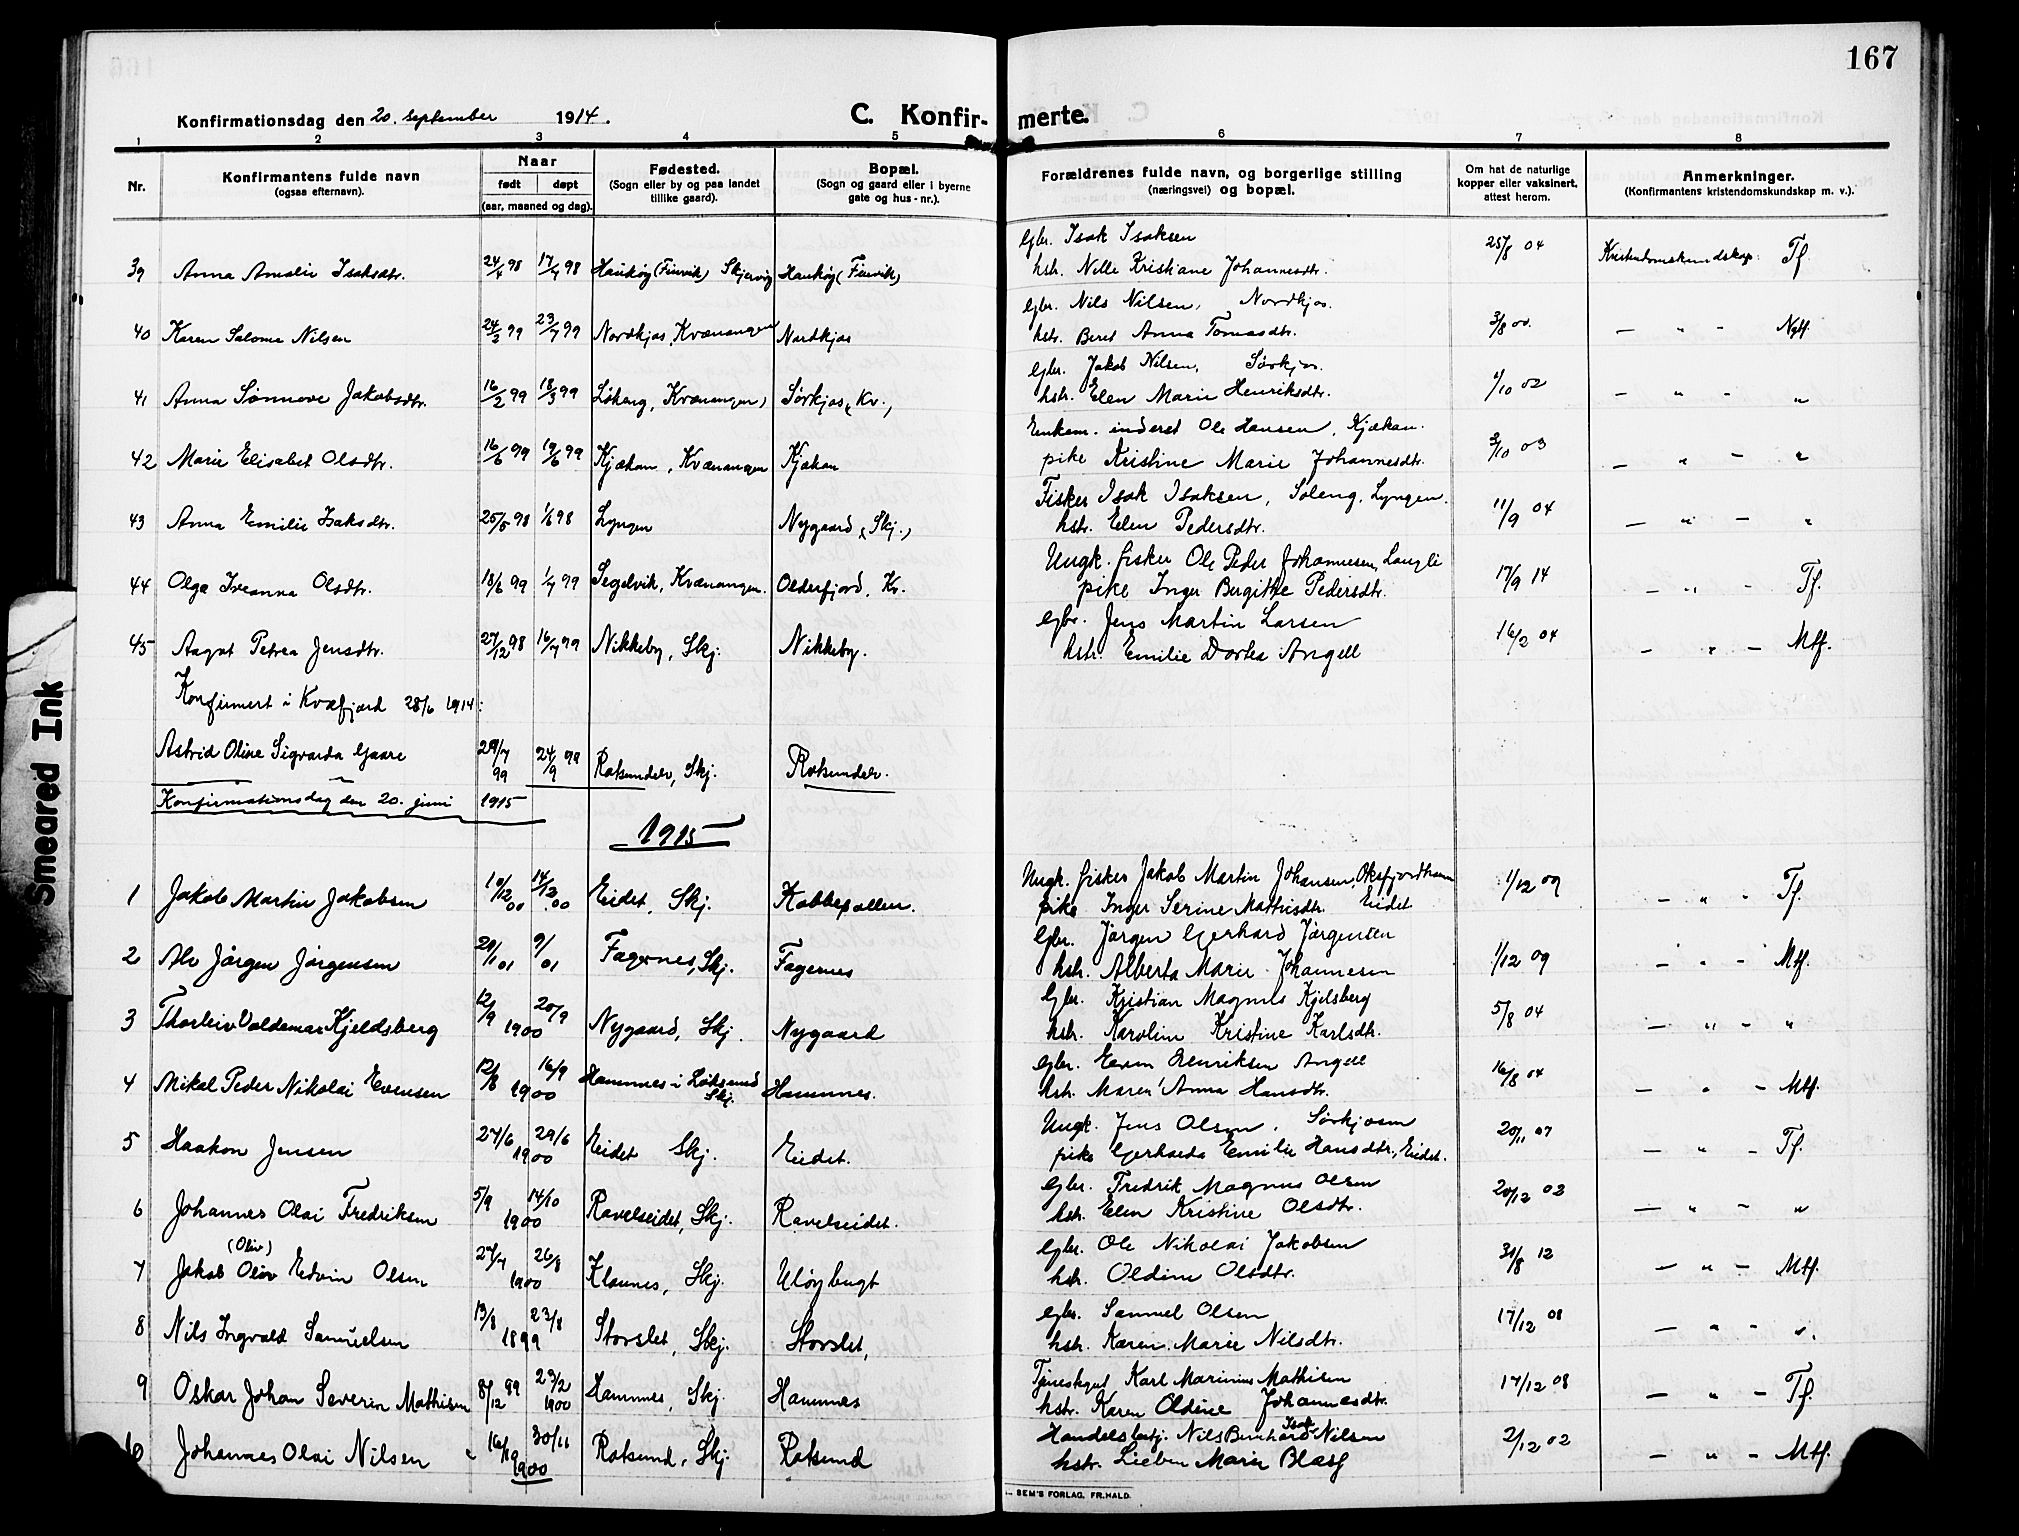 167
Konfirmationsdag den 20. september 1914.
C. Konfir- merte.
1 2 3 4 5 6 7 8
Nr. Konfirmantens fulde navn (ogsaa efternavn). Naar født døpt (aar, maaned og dag). Fødested. (Sogn eller by og paa landet tillike gaard). Bopæl. (Sogn og gaard eller i byerne gate og hus-nr.). Forældrenes fulde navn, og borgerlige stilling (næringsvei) og bopæl. Om hat de naturlige kopper eller vaksinert, attest herom. Anmerkninger. (Konfirmantens kristendomskundskap m. v.).
Gbr. Isak Isaksen
39 Anna Amalie Isaksdtr. 24/4 98 17/7 98 Haukøy (Finvik) Skjervøy Haukøy (Finvik) hstr. Nille Kristiane Johannesdtr. 25/8 04 Kristendomskundskap: Tf.
Gbr. Nils Nilsen, Nordkjos.
40 Karen Salome Nilsen 24/2 99 23/7 99 Nordkjos, Kvænangen Nordkjos hstr. Beret Anna Tomasdtr. 3/8 00. — " - Ngtf.
Gbr. Jakob Nilsen, Sørkjos.
41 Anna Sønnove Jakobsdtr. 16/2 99 18/3 99 Kvænangen Sørkjos (Kv.) hstr. Elen Marie Henriksdtr. /10 02 — " - "
Enkem. inderst Ole Hansen, Kjækan.
42 Marie Elisabet Olsdtr. 16/6 99 19/6 99 Kjækan, Kvænangen Kjækan pike Kristine Marie Johannesdtr. 3/10 03 — " - "
Fisker Isak Isaksen, Soleng, Lyngen.
43 Anna Emilie Isaksdtr. 25/5 98 1/6 98 Lyngen Nygaard (Skj.) hstr. Elen Pedersdtr. 11/9 04 — " - "
Ungk. fisker Ole Peder Johannesen,
44 Olga Ivanna Olsdtr. 18/6 99 1/7 99 Segelvik, Kvænangen. Olderfjord, Kv. pike Inger Bergitte Pedersdtr. 17/9 14 — " - Tf.
Gbr. Jens Martin Larsen
45 Aagot Petrea Jensdtr. 27/12 98 16/7 99 Nikkeby, Skj. Nikkeby. hstr. Emilie Dortea Angell 16/2 04 — " - Mtf.
Konfirmert i Kvæfjord 28/6 1914:
Astrid Oline Sigvarda Gaare 29/7 99 24/9 99 Rotsundelv, Skj. Rotsundelv.
Konfirmationsdag den 20. juni 1915
1915
Ungk. fisker Jakob Martin Johansen, Oksfjordhavn
1 Jakob Martin Jakobsen 10/12 00 14/12 00 Eidet, Skj. Kobbepollen. pike Inger Serine Mathisdtr. Eidet 1/12 09 — " - Tf.
Gbr. Jørgen Gerhard Jørgensen
2 Alv Jørgen Jørgensen 29/1 01 9/ 01 Fagernes, Skj. Fagernes hstr. Alberta Marie Johannesen 1/12 09 — " - Mtf.
Gbr. Kristian Magnus Kjelsberg
3 Thorleiv Valdemar Kjeldsberg 12/9 20/9 1900 Nygaard, Skj. Nygaard hstr. Karoline Kristine Karlsdtr. 5/8 04 — " - "
Gbr. Even Henriksen Angell
4 Mikal Peder Nikolai Evensen 12/8 16/9 1900 Hamnes i Løksund Skj. Hamnes. hstr. Maren Anna Hansdtr. 16/8 04 — " - Mtf.
Ungk. Jens Olsen, Sørkjosen
5 Haakon Jensen 27/6 29/6 1900 Eidet Skj. Eidet. pike Gerharda Emilie Hansdtr., Eidet. 20/11 07 — " - Tf.
Gbr. Fredrik Magnus Olsen
6 Johannes Olai Fredriksen 5/9 14/10 1900 Ravelseidet, Skj. Ravelseidet. hstr. Elen Kristine Olsdtr. 20/12 02 — " - "
(Oliv)
Gbr. Ole Nikolai Jakobsen
7 Jakob Olav Edvin Olsen 27/7 26/8 1900 Klaunes, Skj. Uløybugt hstr. Oldine Olsdtr. 31/8 12 — " - Mtf.
Gbr. Samuel Olsen
8 Nils Ingvald Samuelsen 13/8 23/8 1899 Storslet, Skj. Storslet, hstr. Karen Marie Nilsdtr. 17/12 08 — " - ".
Karl Marinius Mathisen
9 Oskar Johan Severin Mathisen 8/12 99 29/2 1900 Hamnes, Skj. Hamnes hstr. Karen Oldine Johannesdtr. 17/12 08 — " - Tf.
Handelsbetj. Nils Bernhard Isak Nilsen
10 Johannes Olai Nilsen 16/9 30/11 1900 Rotsund, Skj. Rotsund hstr. Marie 2/12 02 — " - Mtf.
SEM'S FORLAG, FR.HALD.
Smeared Ink